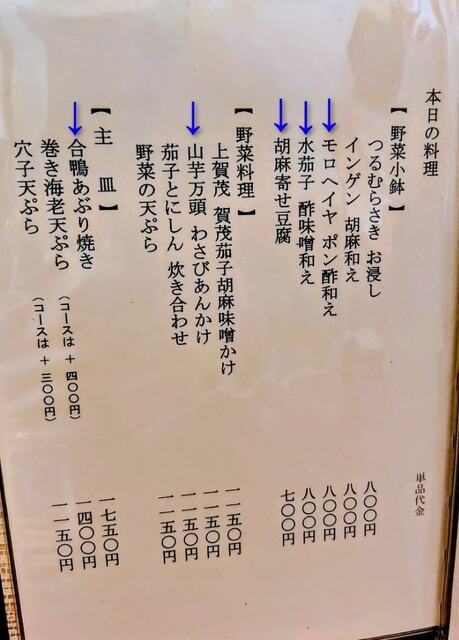 本日の料理 単品代金
【野菜小鉢】
つるむらさき お浸し 八〇〇円
インゲン 胡麻和え 八〇〇円
モロヘイヤ ポン酢和え 八〇〇円
水茄子 酢味噌和え 八〇〇円
胡麻寄せ豆腐 七〇〇円
【野菜料理】
上賀茂 賀茂茄子胡麻味噌かけ 一一五〇円
山芋万頭 わさびあんかけ 一一五〇円
茄子とにしん 炊き合わせ 一一五〇円
野菜の天ぷら 一一五〇円
【主 皿】
合鴨あぶり焼き (コースは+四〇〇円) 一七五〇円
巻き海老天ぷら (コースは+三〇〇円) 一四〇〇円
穴子天ぷら 一一五〇円